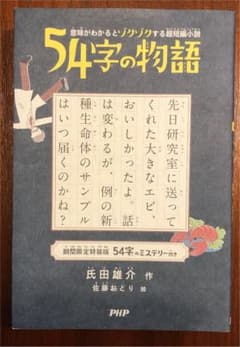 意味がわかるとゾクゾクする超短編小説
54字の物語
先日研究室に送って
くれた大きなエビ、
おいしかったよ。話
は変わるが、例の新
種生命体のサンプル
はいつ届くのかね？
期間限定特装版 54字のミステリー付き
氏田雄介 作
佐藤おどり 絵
PHP